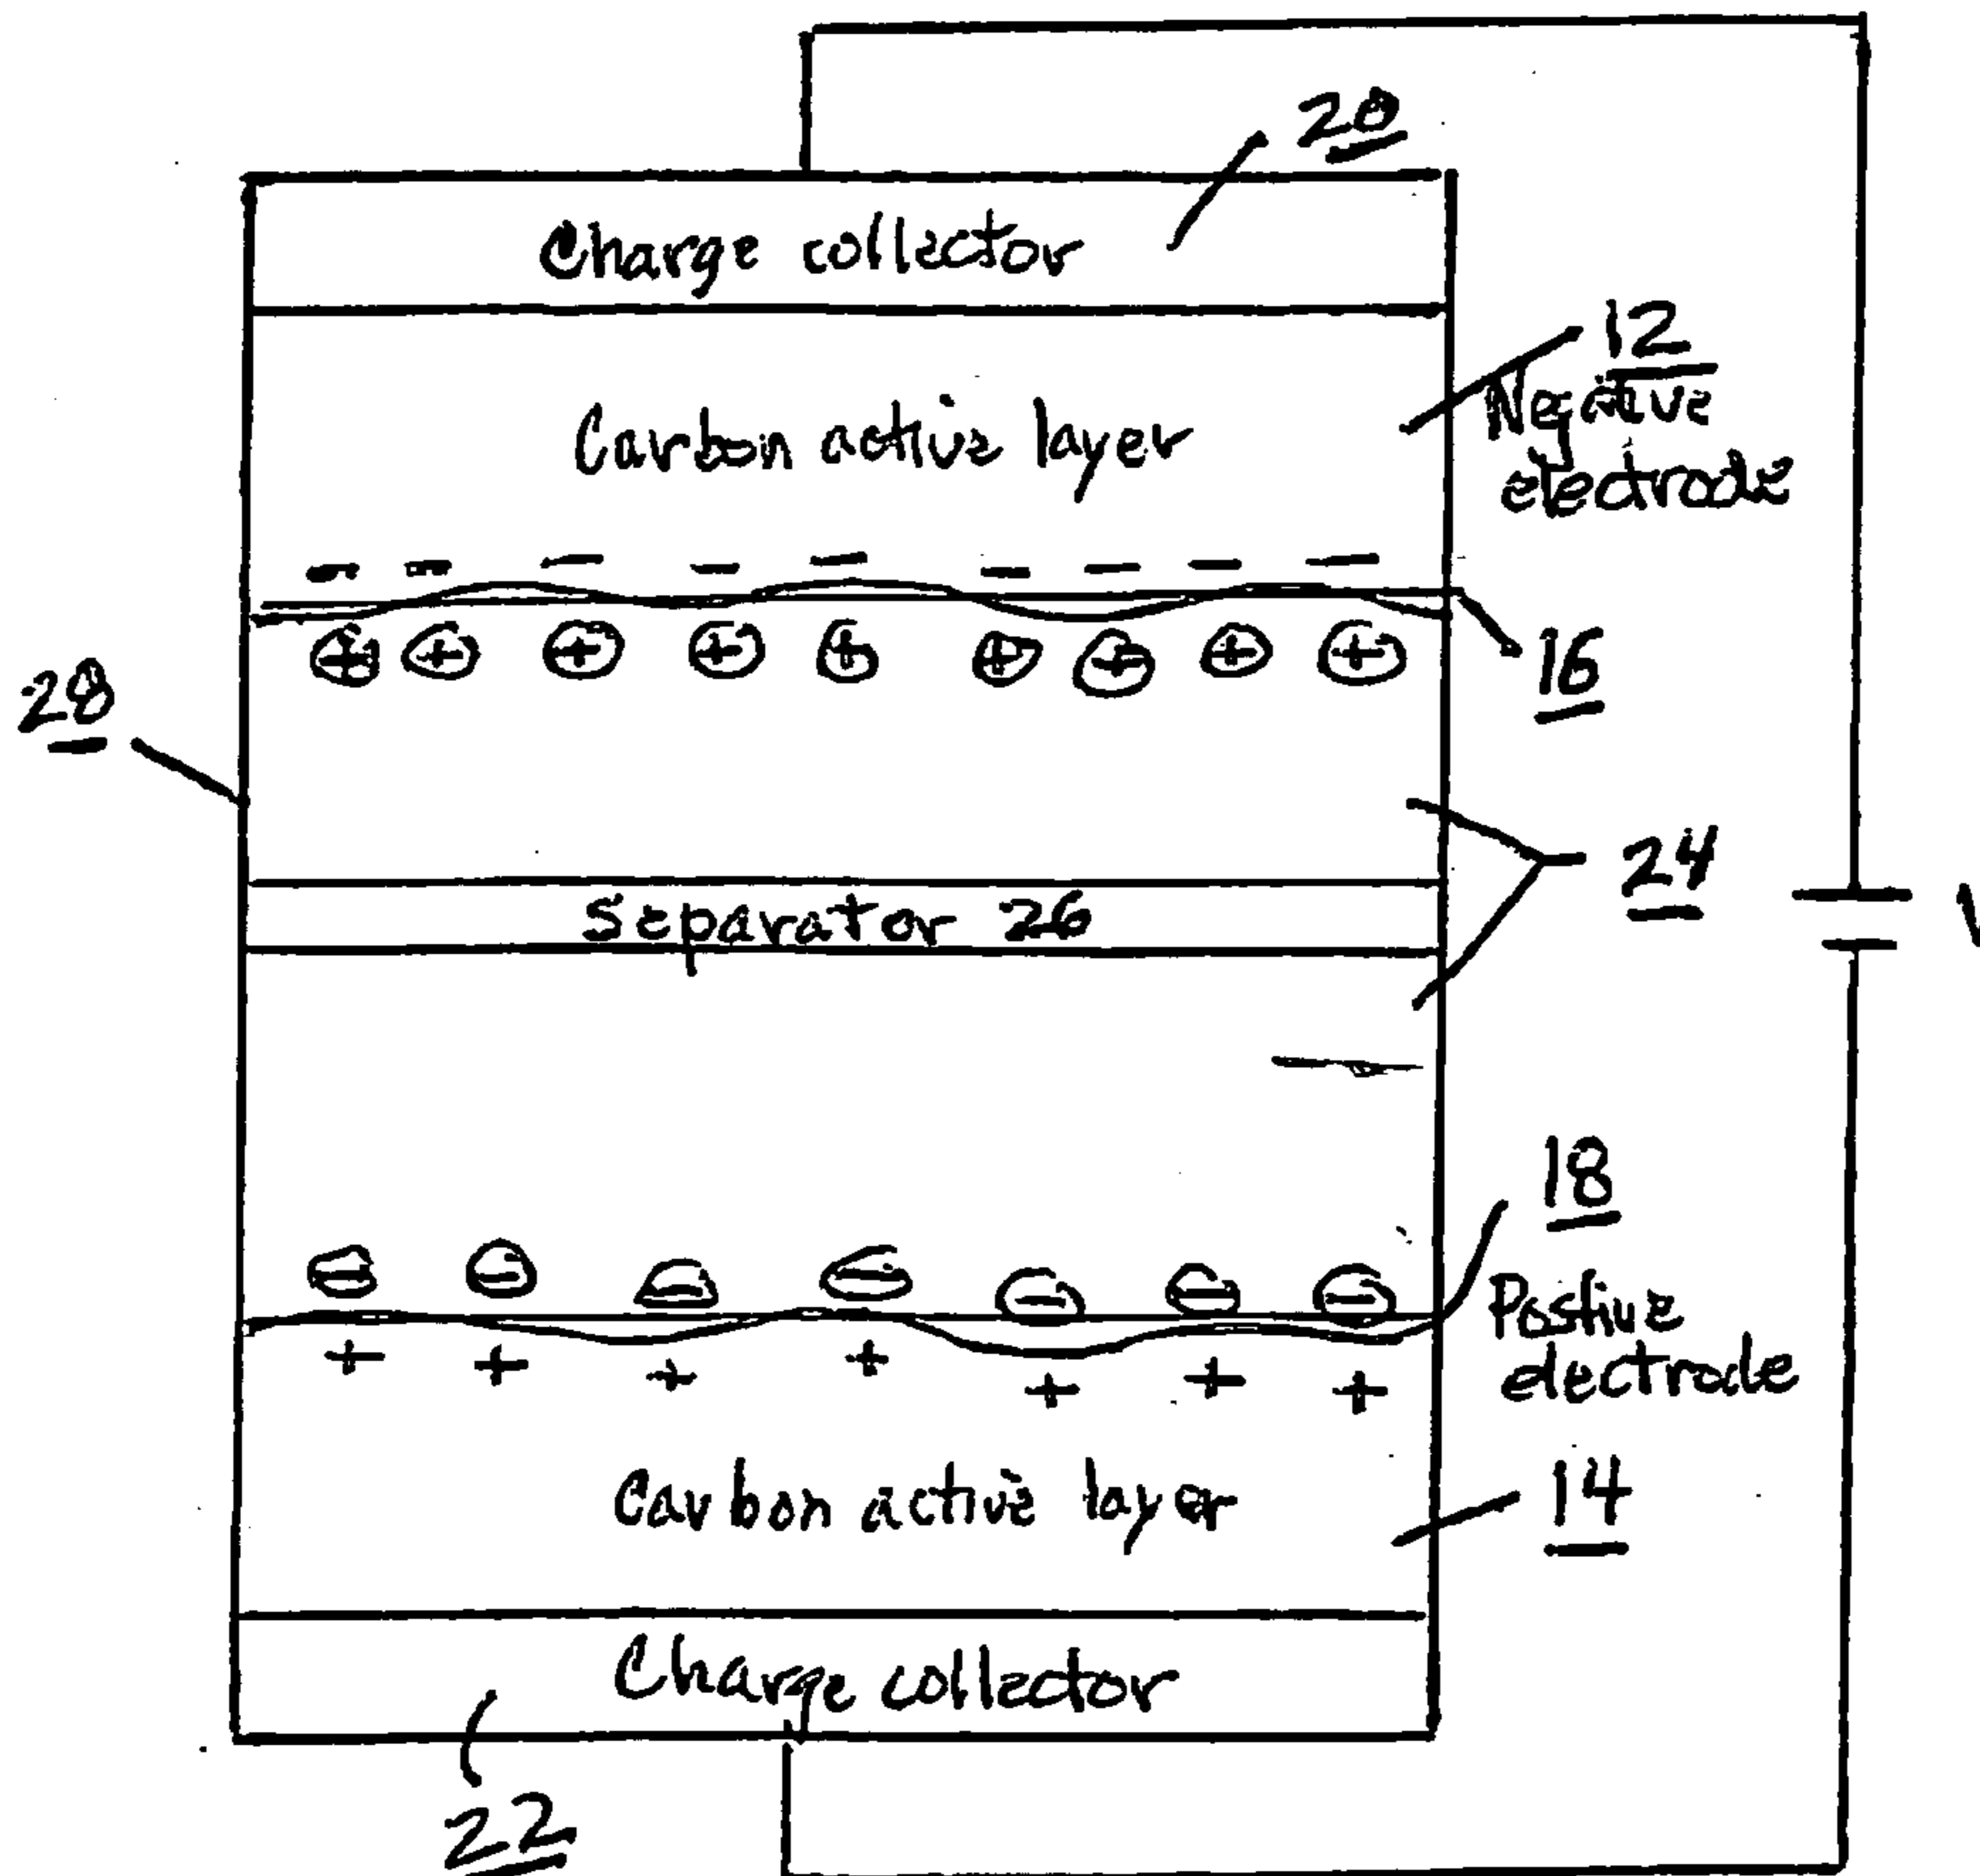 20
Charge collector
12
Negative
electrode
Carbon active layer
- - - - - - - - -
+ + + + + + + + +
16
28
24
Separator 26
V
18
- - - - - - -
Postive
electrode
+ + + + + + +
Carbon active layer
14
Charge collector
22